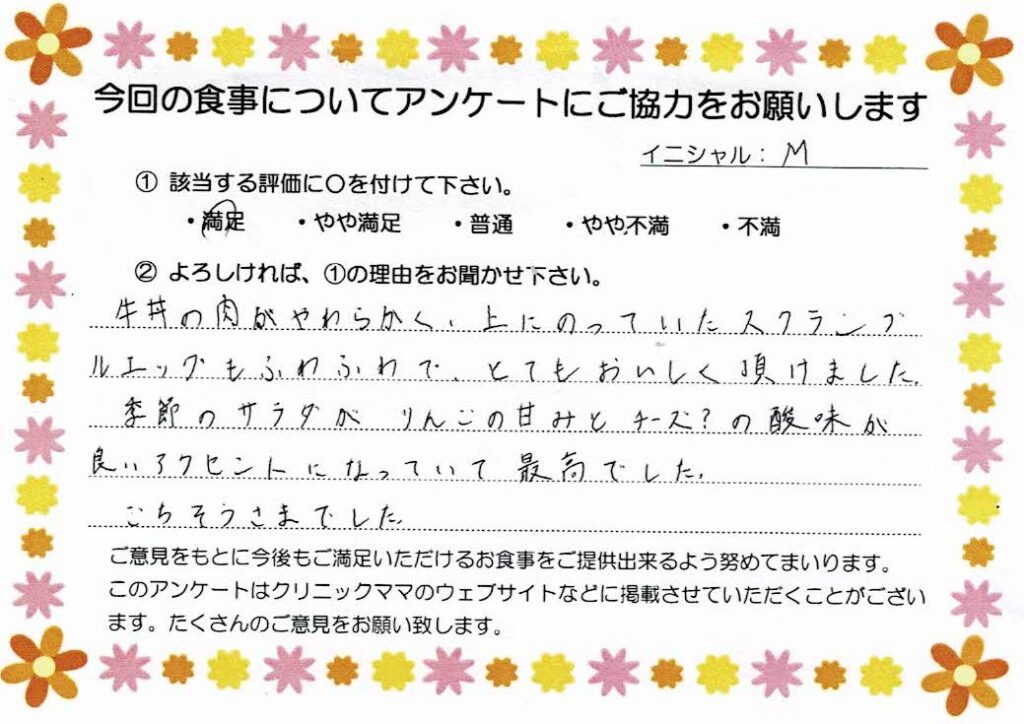 今回の食事についてアンケートにご協力をお願いします
イニシャル： M
① 該当する評価に〇を付けて下さい。
・満足 ・やや満足 ・普通 ・やや不満 ・不満
② よろしければ、①の理由をお聞かせ下さい。
牛丼の肉がやわらかく、上にのっていたスクランブ
ルエッグもふわふわで、とてもおいしく頂けました。
季節のサラダが りんごの甘みと チーズ？の酸味が
良いアクセントになっていて 最高でした。
ごちそうさまでした。
ご意見をもとに今後もご満足いただけるお食事をご提供出来るよう努めてまいります。
このアンケートはクリニックママのウェブサイトなどに掲載させていただくことがござい
ます。たくさんのご意見をお願い致します。